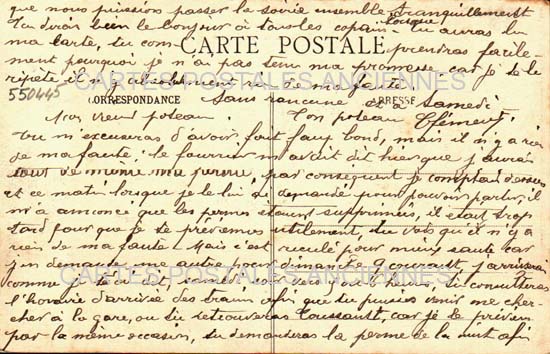 que nous puissions passer la soirée ensemble tranquillement
Tu diras bien le bonjour à tous les copains lorsque tu auras lu
ma carte, tu com- CARTE POSTALE prendras facile-
ment pourquoi je n'ai pas tenu ma promesse car je te le
répète il n'y a absolument rien de ma faute.
CARTES POSTALES ANCIENNES
550445
CORRESPONDANCE Sans rancune et à Samedi
ADRESSE
Mon vieux poteau Ton poteau Clément
Tu m'excuseras d'avoir fait faux bond, mais il n'y a rien
de ma faute; le fourrier m'avait dit hier que j'aurais
tout de même ma perme, par conséquent je comptais dessus
et ce matin lorsque je le lui ai demandé pour pouvoir partir, il
m'a annoncé que les permes étaient supprimées, il était trop
tard pour que je te prévienne utilement, tu vois qu'il n'y a
rien de ma faute. Mais c'est reculé pour mieux sauter car
j'en demande une autre pour dimanche j'arriverai
CARTES POSTALES ANCIENNES
comme je te l'ai dit, samedi soir vers heures, tu consulteras
l'horaire d'arrivée des trains afin que tu puisses venir me cher-
cher à la gare, ou tu retrouveras Toussaint, car je le préviens
par la même occasion, tu demanderas la perme de la nuit afin